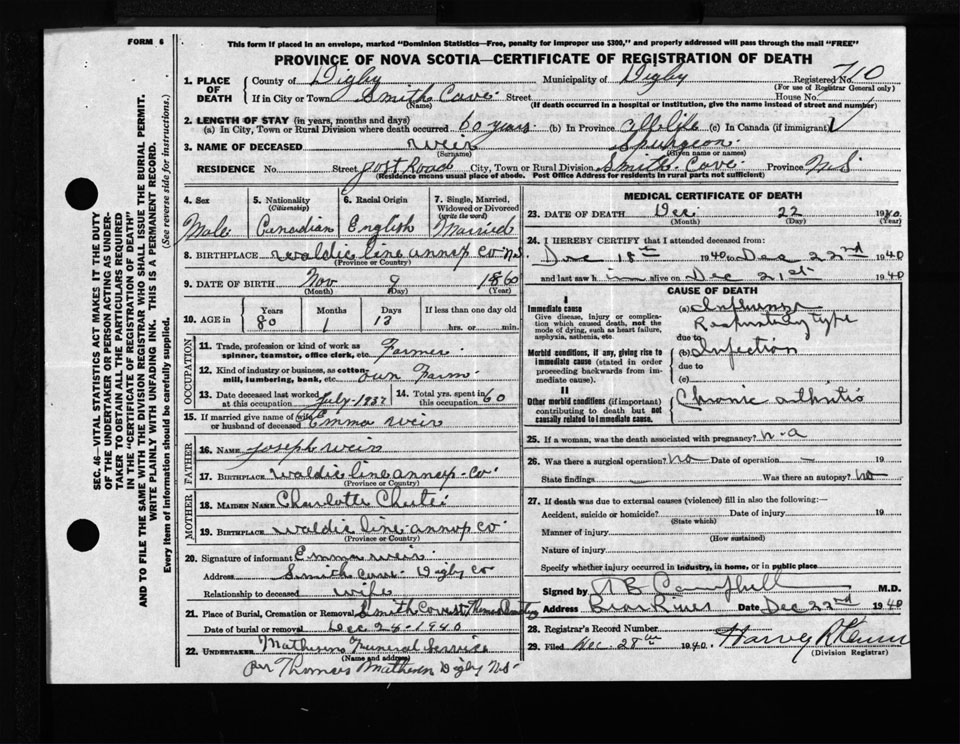 FORM 6
This form if placed in an envelope, marked "Dominion Statistics—Free, penalty for improper use $300," and properly addressed will pass through the mail "FREE"
PROVINCE OF NOVA SCOTIA—CERTIFICATE OF REGISTRATION OF DEATH
1. PLACE OF DEATH County of Digby Municipality of Digby Registered No. 710
(For use of Registrar General only)
If in City or Town Smith Cove Street House No.
(Name) (If death occurred in a hospital or institution, give the name instead of street and number)
2. LENGTH OF STAY (in years, months and days)
(a) In City, Town or Rural Division where death occurred 60 years (b) In Province all life (c) In Canada (if immigrant)
3. NAME OF DECEASED Weir Spurgeon
(Surname) (Given name or names)
RESIDENCE No. Street Post Road City, Town or Rural Division Smith Cove Province N.S
(Residence means usual place of abode. Post Office Address for residents in rural parts not sufficient)
4. Sex Male
5. Nationality (Citizenship) Canadian
6. Racial Origin English
7. Single, Married, Widowed or Divorced (write the word) Married
8. BIRTHPLACE Waldic line annap co N.S
(Province or Country)
9. DATE OF BIRTH Nov 9 1860
(Month) (Day) (Year)
10. AGE in Years 80 Months 1 Days 13 If less than one day old hrs. or min.
OCCUPATION
11. Trade, profession or kind of work as spinner, teamster, office clerk, etc. Farmer
12. Kind of industry or business, as cotton mill, lumbering, bank, etc. own Farm
13. Date deceased last worked at this occupation July 1937 14. Total yrs. spent in this occupation 60
15. If married give name of wife or husband of deceased Emma Weir
FATHER
16. NAME Joseph Weir
17. BIRTHPLACE Waldic line annap co
(Province or Country)
MOTHER
18. MAIDEN NAME Charlotte
19. BIRTHPLACE Waldic line annap co
(Province or Country)
20. Signature of informant Emma Weir
Address Smith Cove Digby Co
Relationship to deceased wife
21. Place of Burial, Cremation or Removal Smith Cove
Date of burial or removal Dec 24 - 1940
22. UNDERTAKER Funeral Service
(Name and address)
per Thomas Digby N.S
MEDICAL CERTIFICATE OF DEATH
23. DATE OF DEATH Dec. 22 1940
(Month) (Day) (Year)
24. I HEREBY CERTIFY that I attended deceased from:
Dec 18th 1940 to Dec 22nd 1940
and last saw him alive on Dec 21st 1940
CAUSE OF DEATH
I
Immediate cause
Give disease, injury or complication which caused death, not the mode of dying, such as heart failure, asphyxia, asthenia, etc.
(a) Influenza
Respiratory type
due to
Morbid conditions, if any, giving rise to immediate cause (stated in order proceeding backwards from immediate cause).
(b) Infection
due to
(c)
II
Other morbid conditions (if important) contributing to death but not causally related to immediate cause.
Chronic arthritis
25. If a woman, was the death associated with pregnancy? n-a
26. Was there a surgical operation? no Date of operation —
State findings — Was there an autopsy? no
27. If death was due to external causes (violence) fill in also the following:—
Accident, suicide or homicide? Date of injury 19
(State which)
Manner of injury
(How sustained)
Nature of injury
Specify whether injury occurred in industry, in home, or in public place
Signed by Campbell M.D.
Address Bear River Date Dec 22nd 1940
28. Registrar's Record Number
29. Filed Dec. 28th 1940. Harvey
(Division Registrar)
SEC. 46—VITAL STATISTICS ACT MAKES IT THE DUTY
OF THE UNDERTAKER OR PERSON ACTING AS UNDER-
TAKER TO OBTAIN ALL THE PARTICULARS REQUIRED
IN THE "CERTIFICATE OF REGISTRATION OF DEATH"
AND TO FILE THE SAME WITH THE DIVISION REGISTRAR WHO SHALL ISSUE THE BURIAL PERMIT.
WRITE PLAINLY WITH UNFADING INK. THIS IS A PERMANENT RECORD.
Every item of information should be carefully supplied. (See reverse side for instructions)